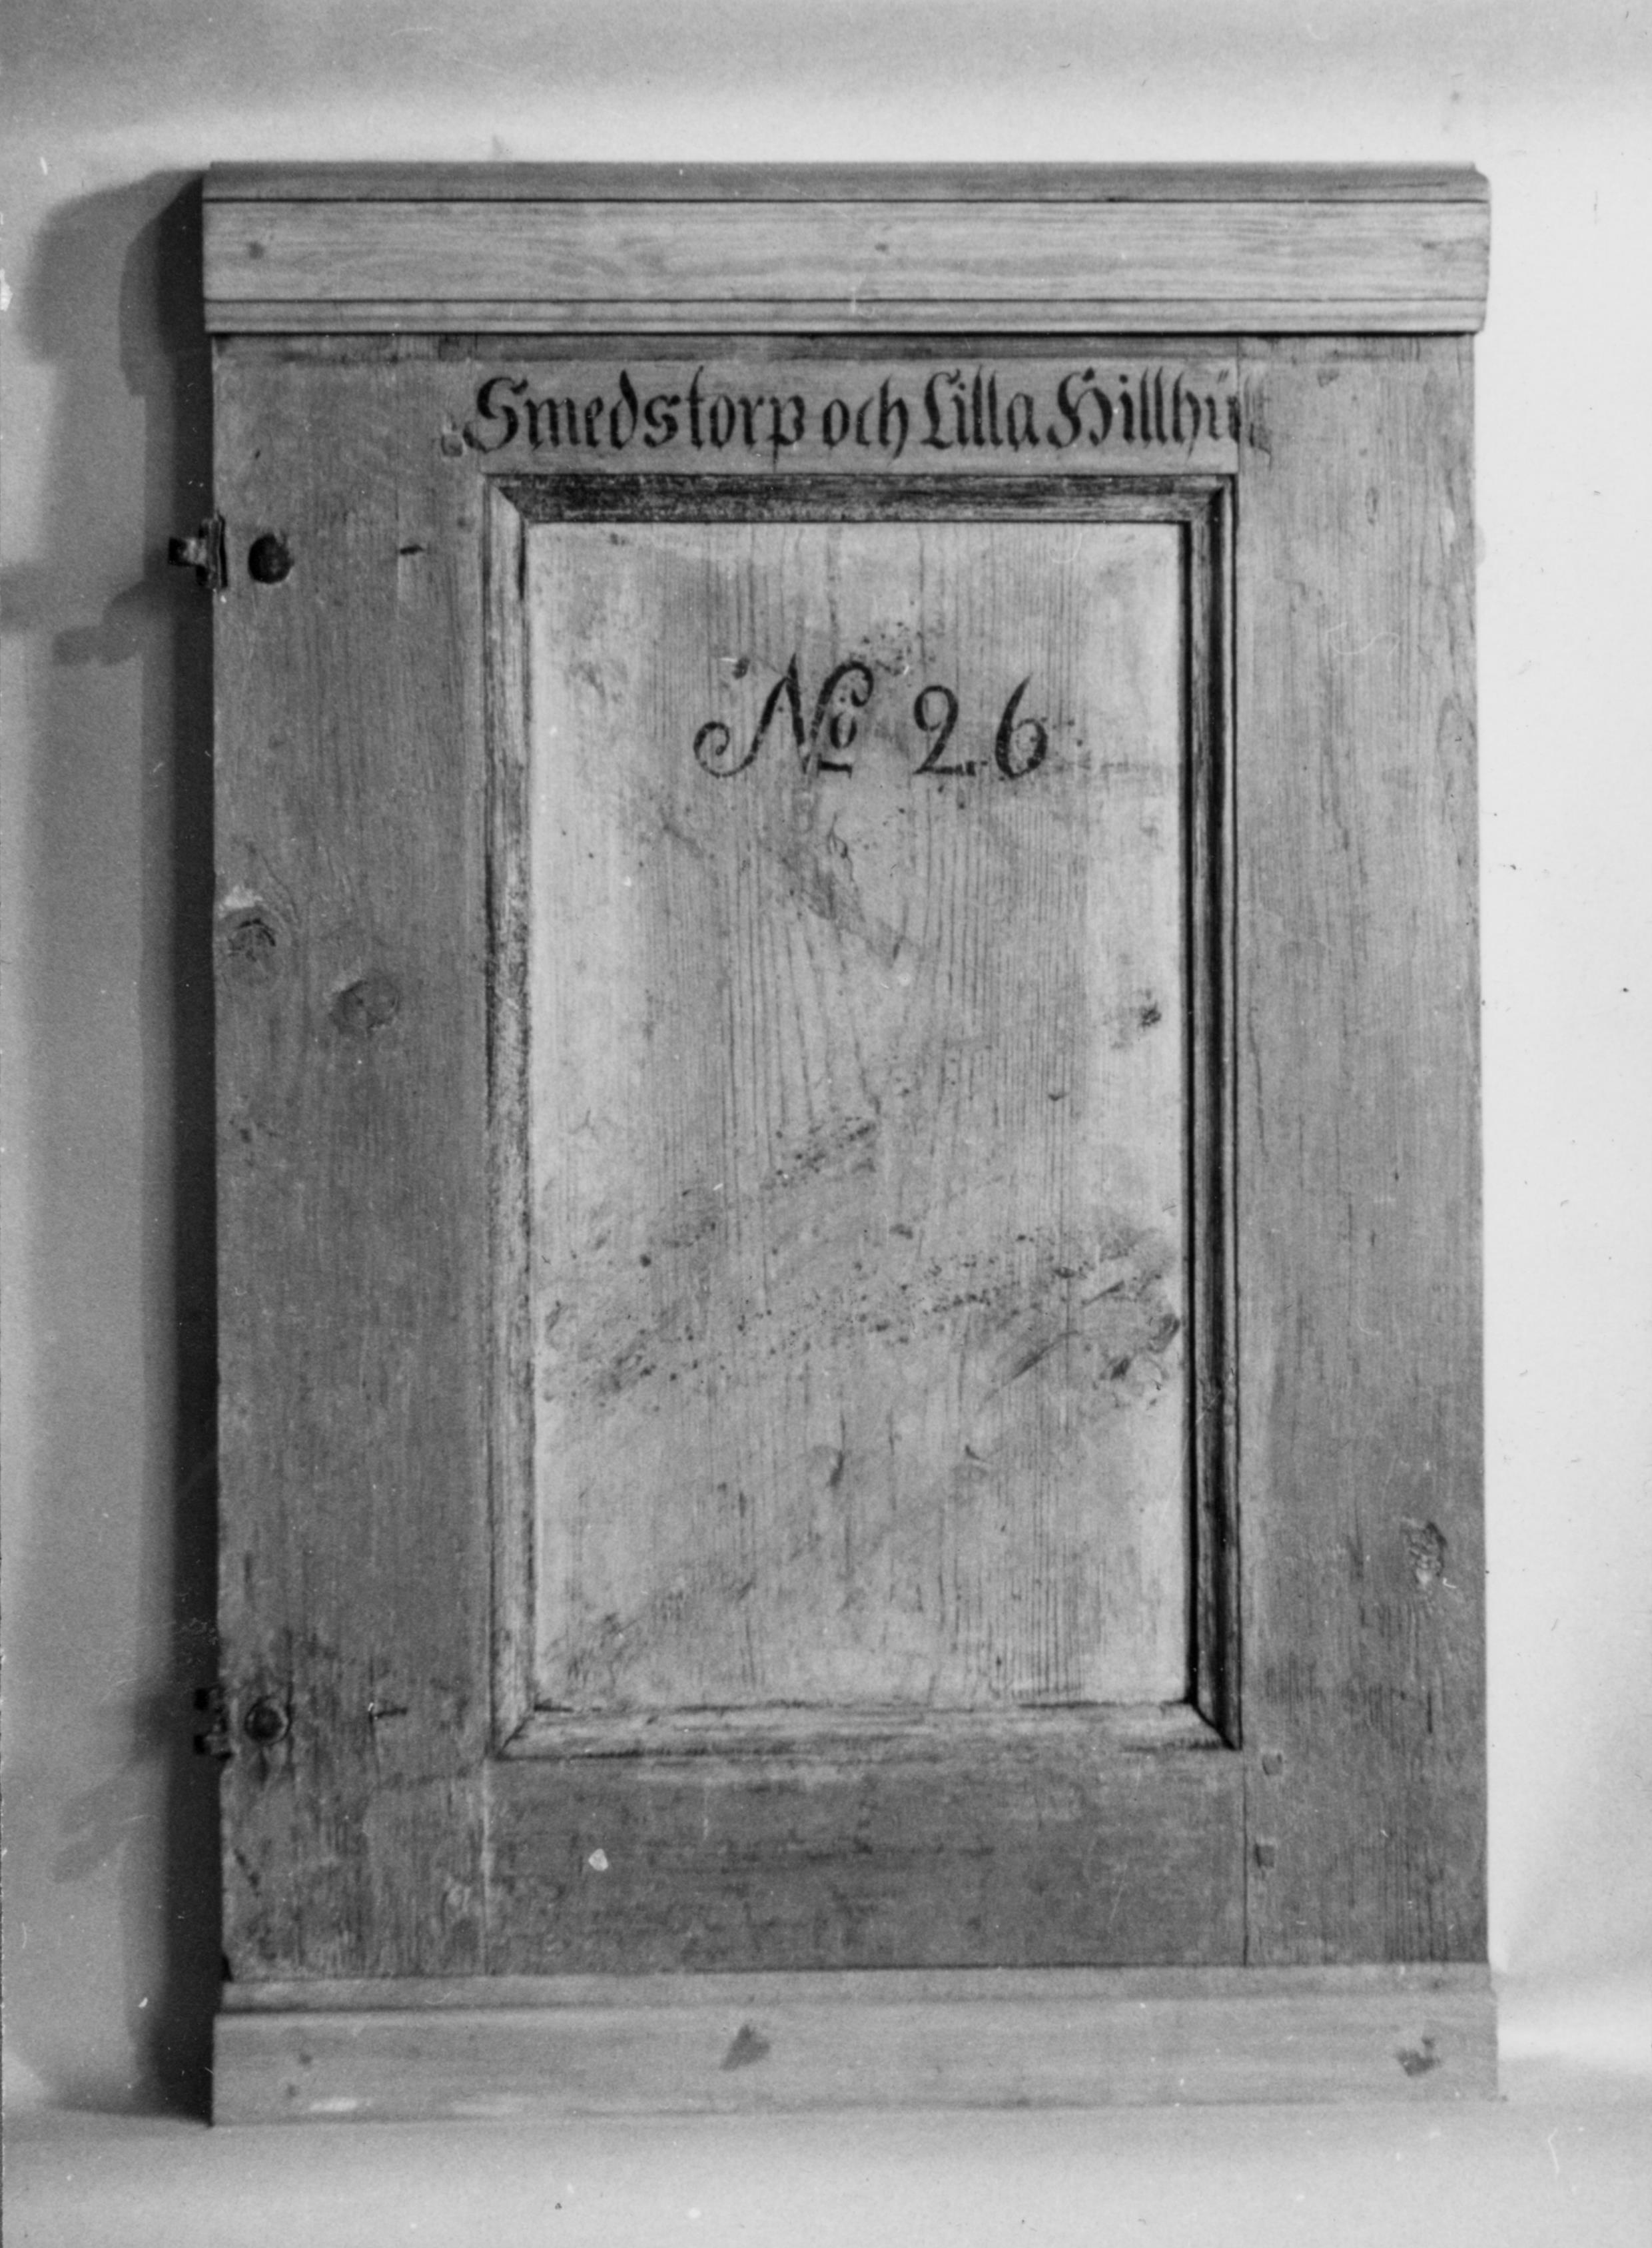 Smedstorp och Lilla Hillhü
Nº 26